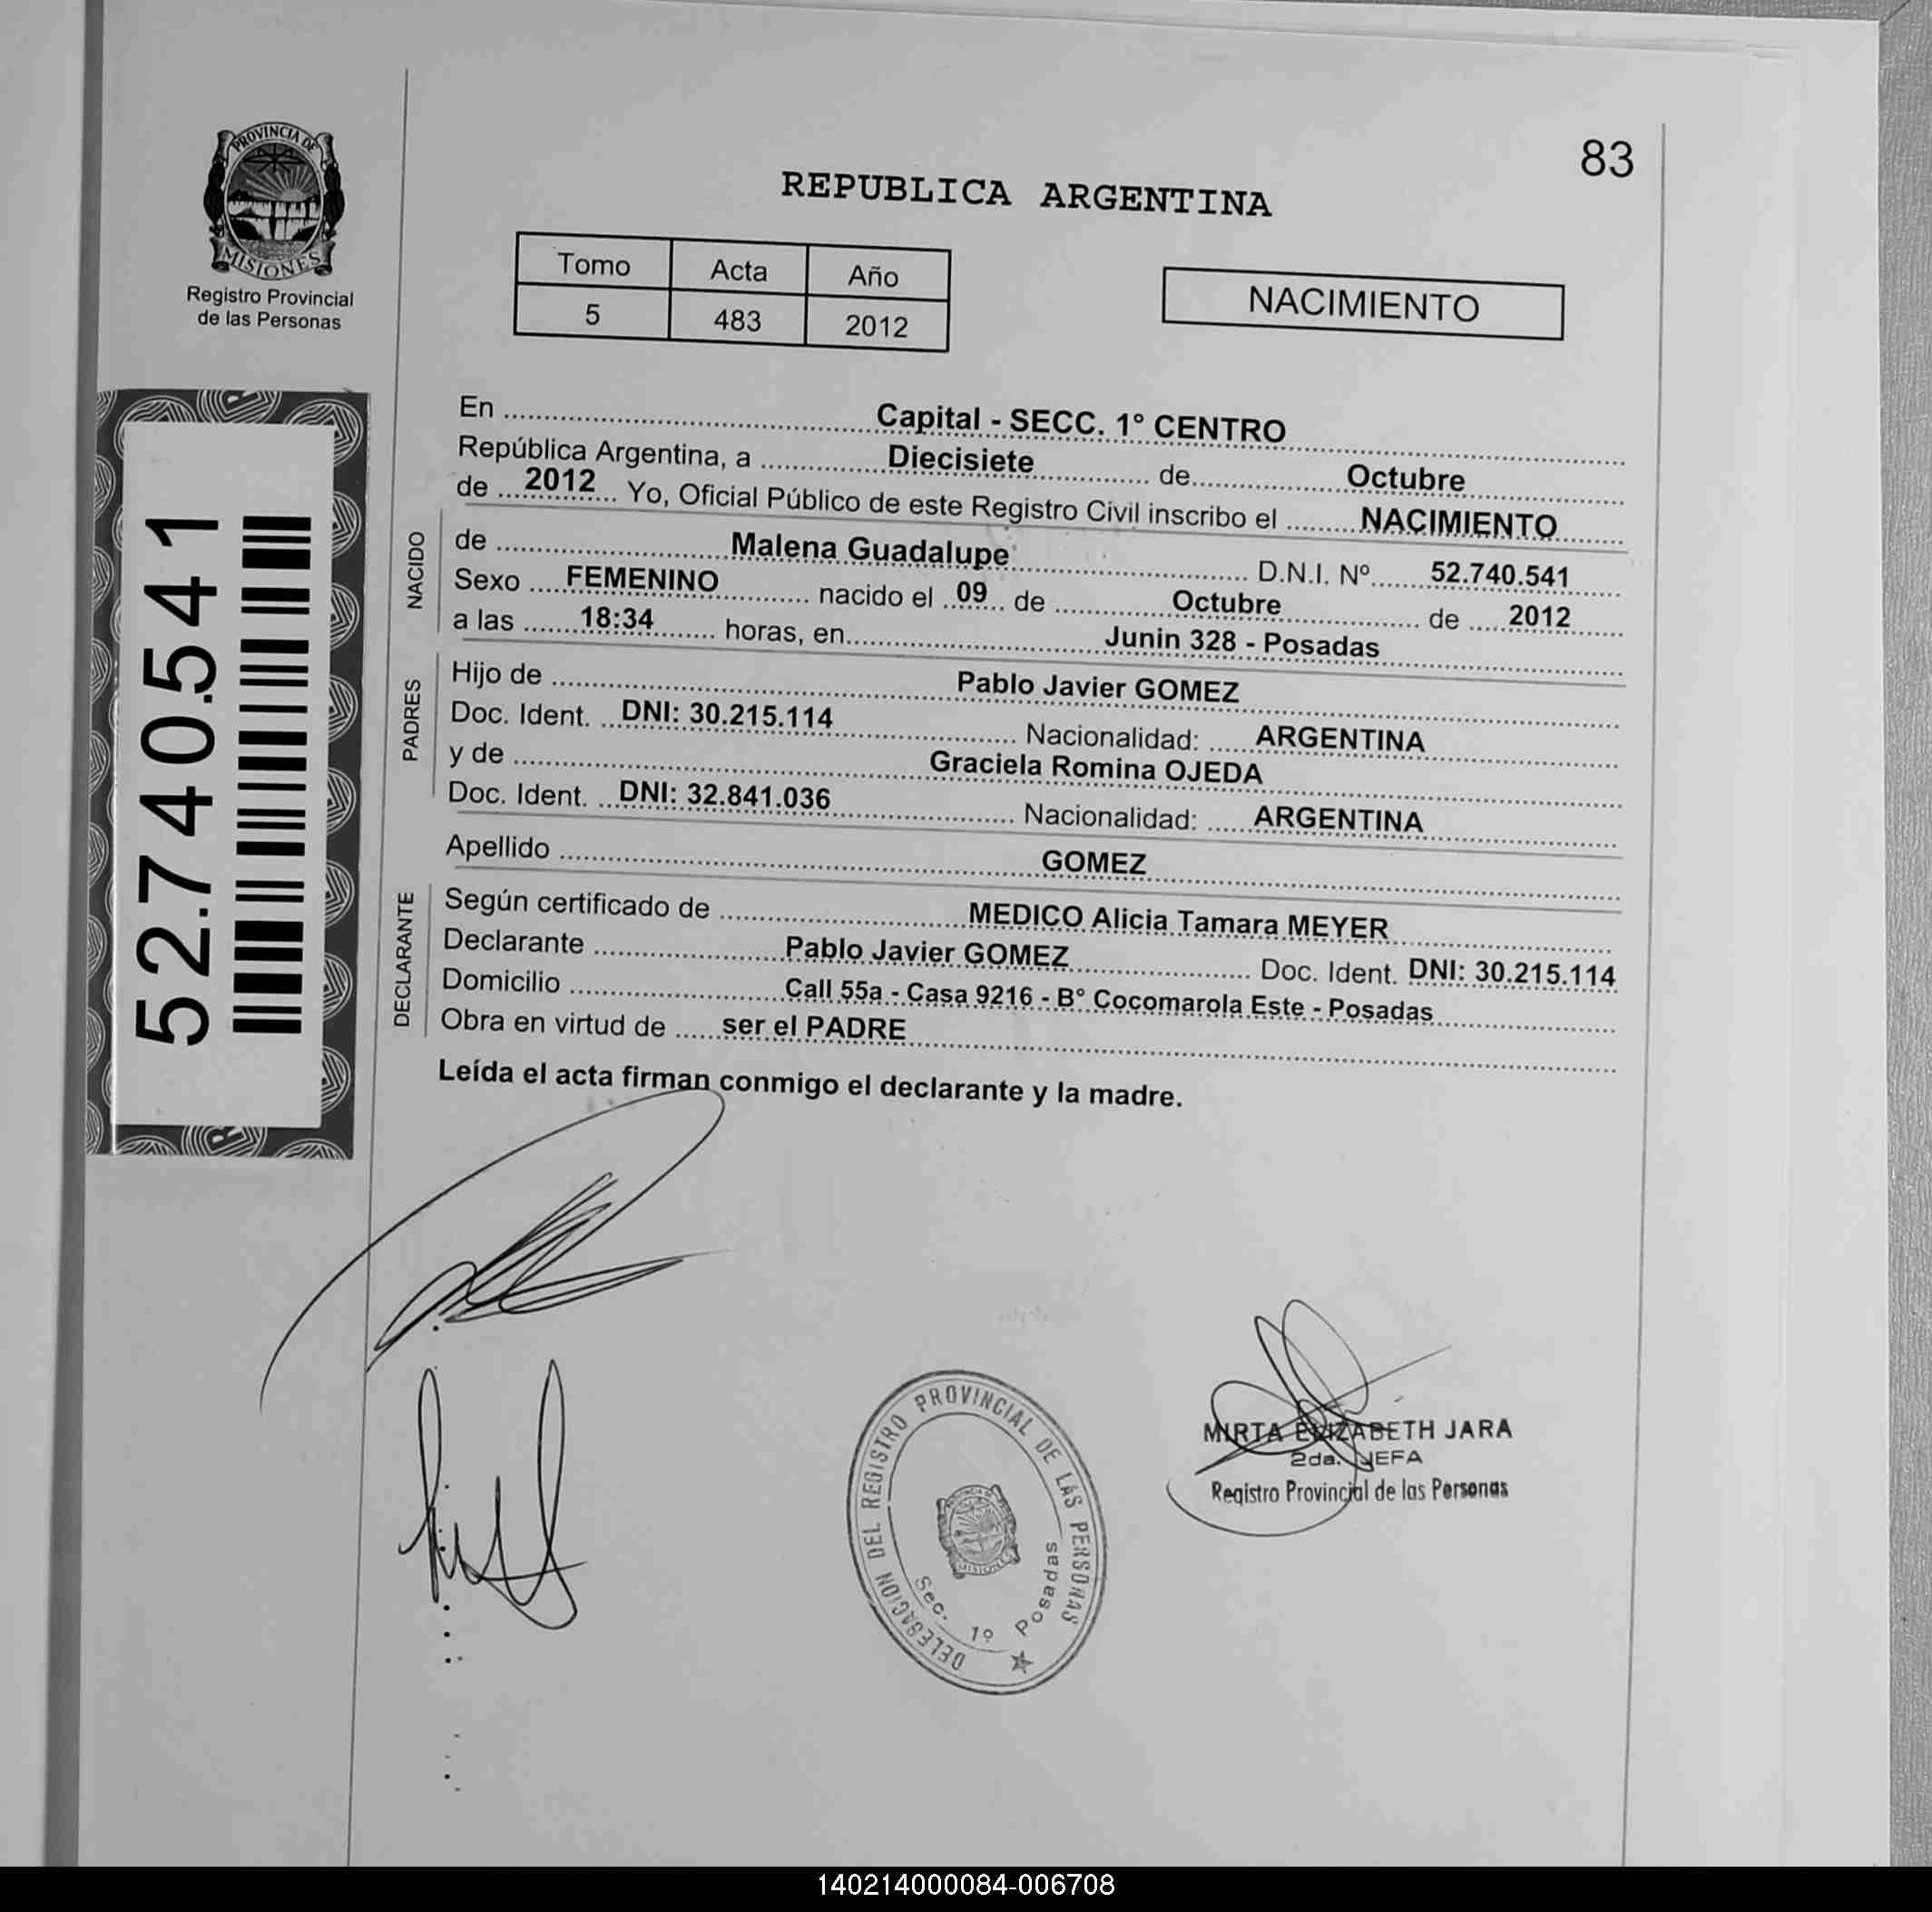 PROVINCIA DE
MISIONES
Registro Provincial
de las Personas
83
REPUBLICA ARGENTINA
Tomo Acta Año
5 483 2012
NACIMIENTO
52.740.541
En Capital - SECC. 1° CENTRO
República Argentina, a Diecisiete de Octubre
de 2012 Yo, Oficial Público de este Registro Civil inscribo el NACIMIENTO
NACIDO
de Malena Guadalupe D.N.I. Nº 52.740.541
Sexo FEMENINO nacido el 09 de Octubre de 2012
a las 18:34 horas, en Junin 328 - Posadas
PADRES
Hijo de Pablo Javier GOMEZ
Doc. Ident. DNI: 30.215.114 Nacionalidad: ARGENTINA
y de Graciela Romina OJEDA
Doc. Ident. DNI: 32.841.036 Nacionalidad: ARGENTINA
Apellido GOMEZ
DECLARANTE
Según certificado de MEDICO Alicia Tamara MEYER
Declarante Pablo Javier GOMEZ Doc. Ident. DNI: 30.215.114
Domicilio Call 55a - Casa 9216 - B° Cocomarola Este - Posadas
Obra en virtud de ser el PADRE
Leída el acta firman conmigo el declarante y la madre.
DELEGACION DEL REGISTRO PROVINCIAL DE LAS PERSONAS
Sec. 1º Posadas
MIRTA ELIZABETH JARA
2da. JEFA
Registro Provincial de las Personas
140214000084-006708